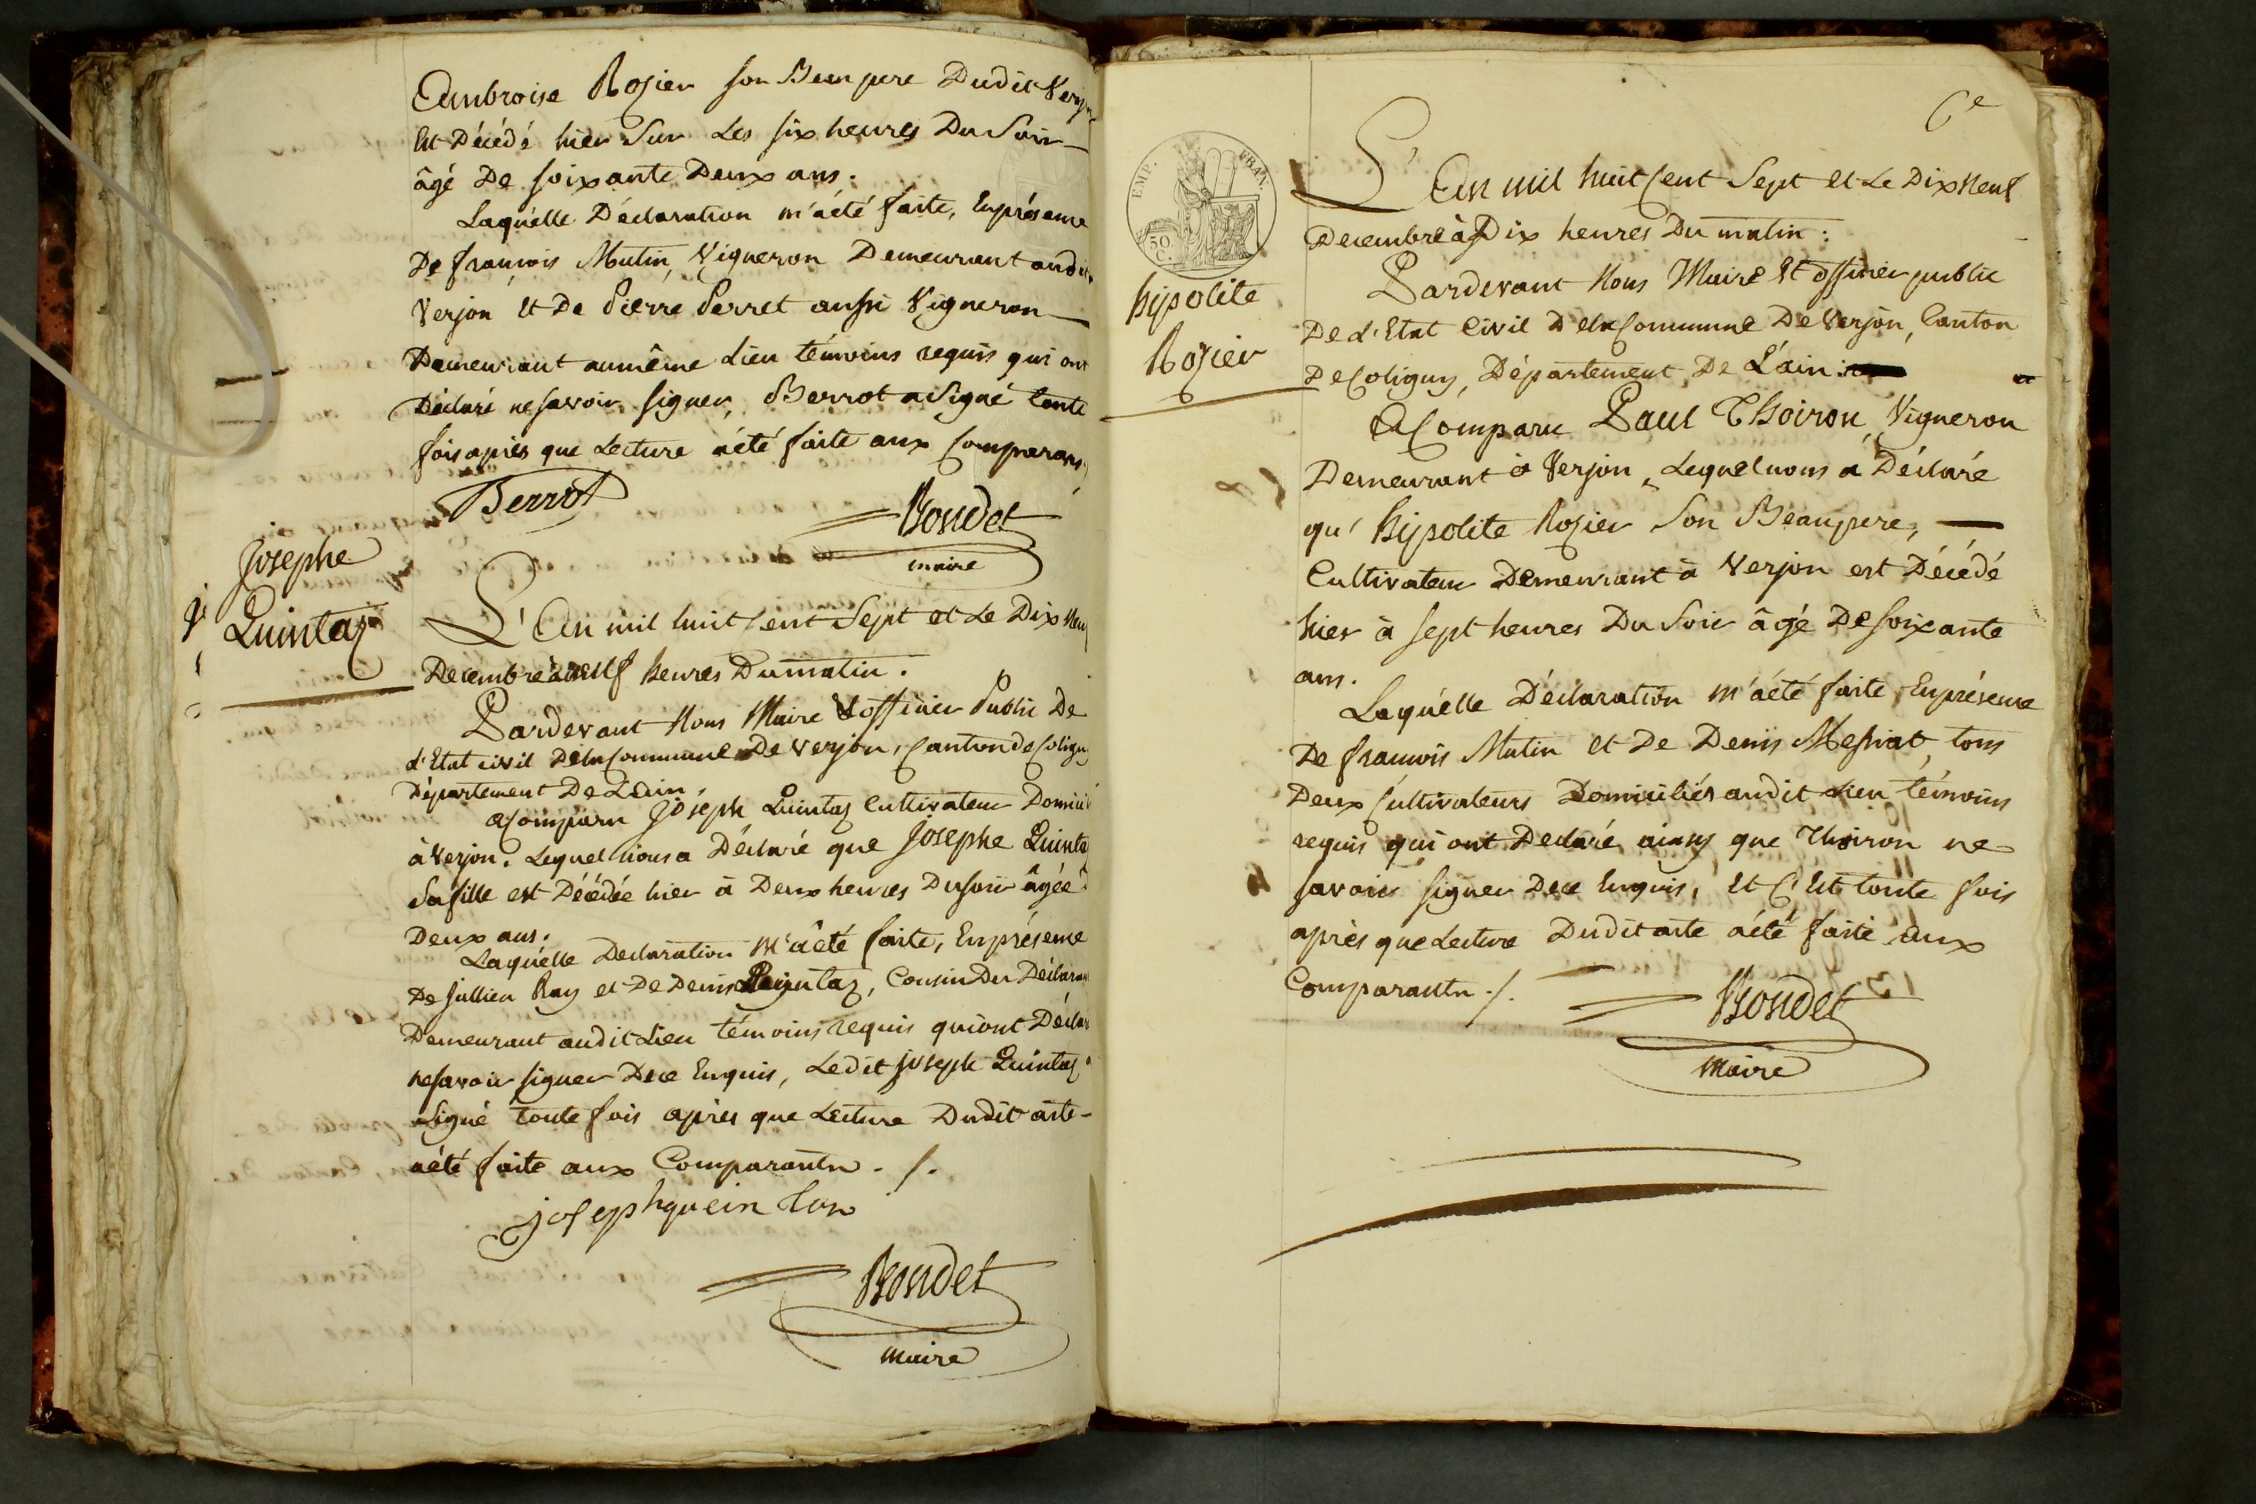 Ambroise Rozier son Beau pere Dudit Verjon
Est Décédé hier Sur Les six heures Du Soir
âgé De soixante Deux ans.
Laquélle Déclaration m'a été faite, En présence
De françois Mutin, Vigneron Demeurant audit
Verjon Et De Pierre Perret aussi Vigneron
Demeurant au même Lieu témoins requis qui ont
Déclaré ne savoir signer, Berrot a Signé toute
fois après que Lecture a été faite aux Comparans,
Berrot
Bondet
maire
Josephe
Quintaz
L'An mil huit Cent Sept et Le Dix Neuf
Decembre à neuf heures Du matin.
Pardevant Nous Maire & officier Public De
L'Etat civil De la Commune De Verjon, Canton de Coligny
Département De L'ain,
a Comparu Joseph Quintaz Cultivateur Domicilié
à Verjon. Lequel nous a Déclaré que Josephe Quintaz
Sa fille est Décédée hier à Deux heures Du soir âgée
Deux ans.
Laquélle Declaration m'a été faite, En présence
De Jullien Ray et De Denis Quintaz, Cousin Du Déclarant
Demeurant audit Lieu témoins requis qui ont Déclaré
ne savoir signer De ce Enquis, Ledit joseph Quintaz a
Signé toute fois après que Lecture Dudit acte
a été faite aux Comparants ./.
joseph quein tas
Bondet
maire
6e
EMP. FRAN.
50 C.
hipolite
Rozier
L'An mil huit Cent Sept et Le Dix Neuf
Decembre à Dix heures Du matin:
Pardevant Nous Maire Et officier public
De L'Etat Civil De la Commune De Verjon, Canton
De Coligny, Département De L'ain:
A Comparu Paul Thoiron, Vigneron
Demeurant à Verjon, Lequel nous a Déclaré
qu' hipolite Rozier Son Beaupere,
Cultivateur Demeurant à Verjon est Décédé
hier à sept heures Du Soir âgé De soixante
ans.
Laquélle Déclaration m'a été faite, En présence
De françois Mutin et De Denis Mesnat, tous
Deux Cultivateurs Domiciliés audit Lieu témoins
requis qui ont Declaré ainsy que Thoiron ne
savoir signer De ce Enquis, Et C'Est toute fois
après que Lecture Dudit acte a été faite aux
Comparants ./.
Bondet
Maire